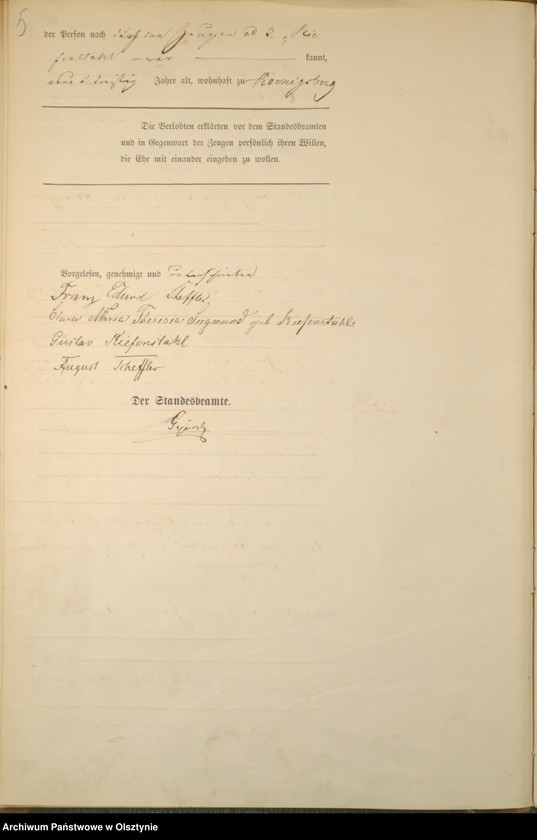 5
der Person nach durch den Zeugen ad 3. Kie
fenstahl
kannt,
Jahre alt, wohnhaft zu Koenigsberg
Die Verlobten erklärten vor dem Standesbeamten
und in Gegenwart der Zeugen persönlich ihren Willen,
die Ehe mit einander eingehen zu wollen.
Vorgelesen, genehmigt und unterschrieben
Franz Scheffler,
Clara Maria Theresia Siegmund geb.
Gustav Kiefenstahl
August Scheffler
Der Standesbeamte.
Archiwum Państwowe w Olsztynie